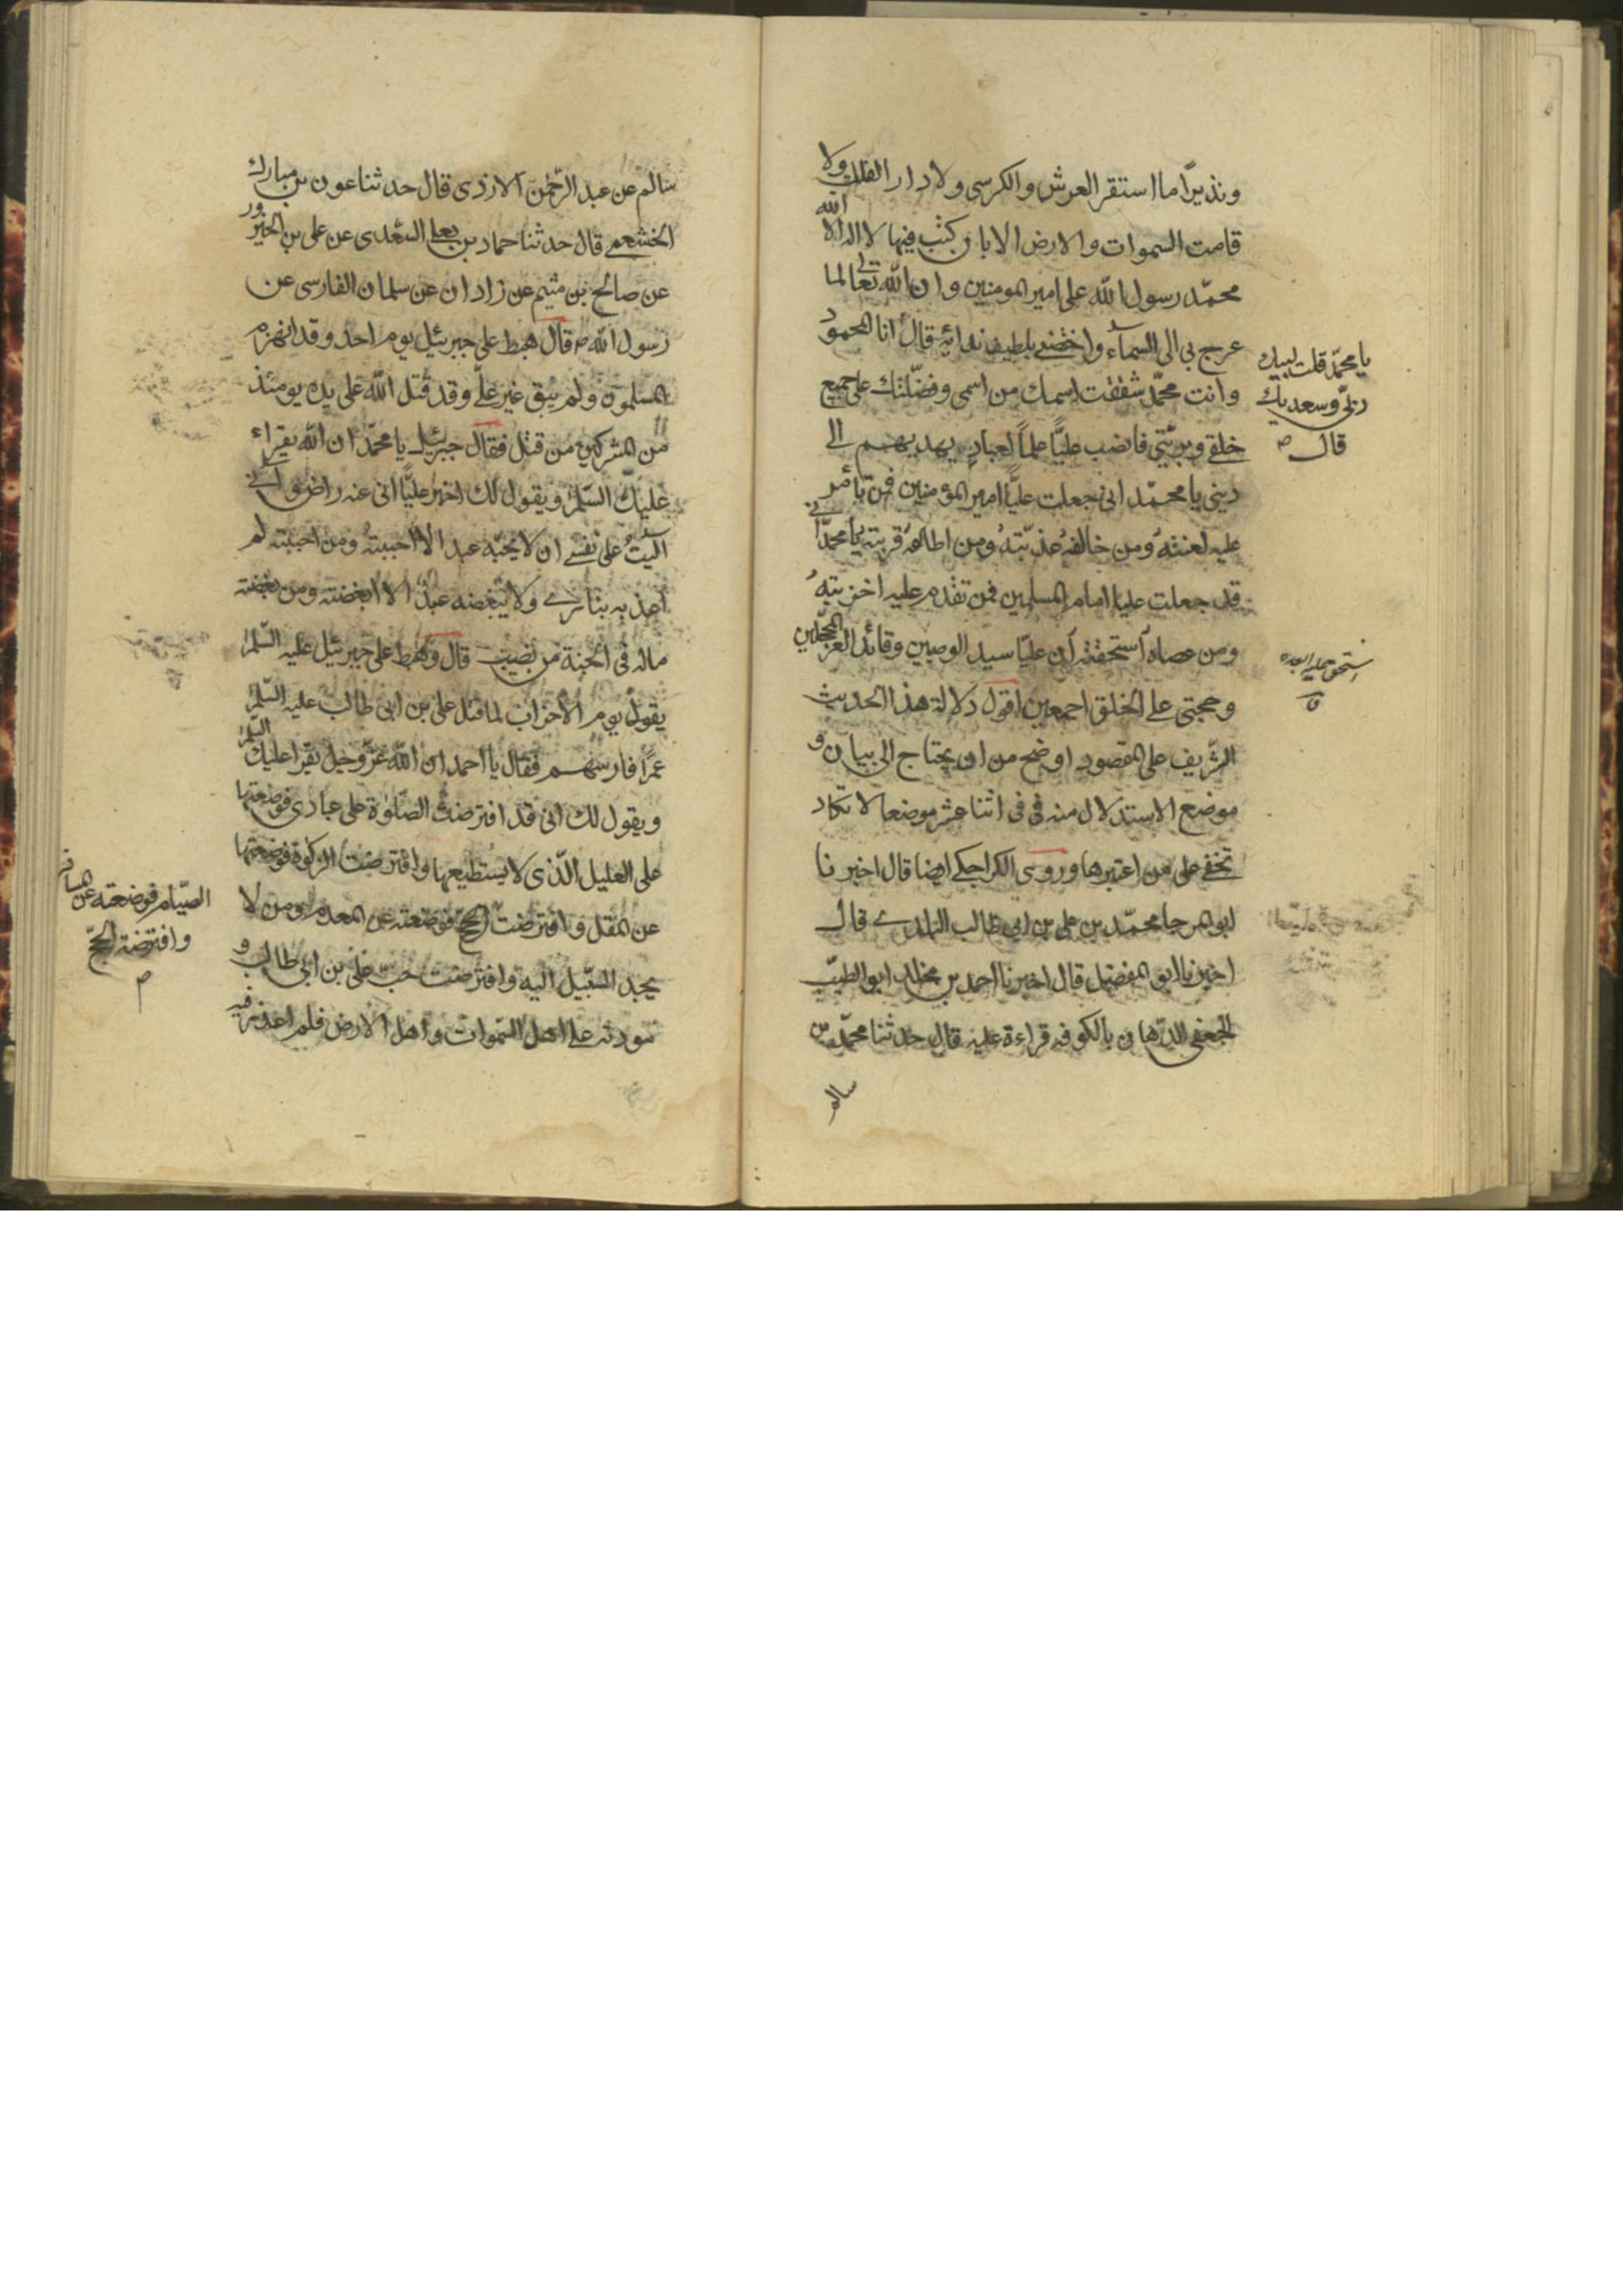 ونذيرًا ما استقر العرش والكرسى ولا دار الفلك ولا
قامت السموات والارض الا بان كتب فيها لا اله الا الله
محمّد رسول الله على امير المومنين وان الله تعالى لما
عرج بى الى السماء واختصنى بلطيف ندائه قال
يا محمّد قلت لبيك
ربّى وسعديك
قال ص
انا المحمود
وانت محمّد شققت اسمك من اسمى وفضّلتك على جميع
خلقى وبريّتى فانصب عليًّا علمًا لعبادى يهديهم الى
دينى يا محمّد انى جعلت عليًّا امير المؤمنين فمن تأمر
عليه لعنتهُ ومن خالفهُ عذبّتهُ ومن اطاعهُ قربته يا محمّد انى
قد جعلت عليا امام المسلمين فمن تقدم عليه اخزيتهُ
ومن عصاه استحقته ان عليّا سيد الوصيين وقائد الغر المحجّلين
وحجتى على الخلق اجمعين اقول دلالة هذا الحديث
الشّريف على المقصود اوضح من ان يحتاج الى بيان و
موضع الاستدلال منه فى فى اثنا عشر موضعا لا تكاد
تخفى على من اعتبرها وروى الكراجكى ايضا قال اخبرنا
ابو المرجا محمّد بن على بن ابى طالب البلدى قال
اخبرنا ابو المفضل قال اخبرنا احمد بن مخلد ابو الطيّب
الجعفى الدّهان بالكوفه قراءة عليه قال حدثنا محمّد بن
سالم
سالم عن عبد الرّحمن الازدى قال حدثنا عون بن مبارك
الخشعمى قال حدثنا حماد بن يعلى السّعدى عن على بن الحزور
عن صالح بن ميثم عن زادان عن سلمان الفارسى عن
رسول الله ص قال هبط على جبرئيل يوم احد وقد انهزم
المسلمون ولم يبق غير على وقد قتل الله على يده يومئذ
من المشركين من قتل فقال جبرئيل يا محمّد ان الله يقراء
عليك السّلم ويقول لك اخبر عليًّا انى عنه راض وانى
آليتُ على نفسى ان لا يحبّه عبد الا احببته ومن احببته لم
اعذبه بنارى ولا يبغضه عبدٌ الا ابغضته ومن ابغضته
ماله فى الجنة من نصيب قال وهبط على جبرئيل عليه السّلم
يقول يوم الاحزاب لما قتل على بن ابى طالب عليه السّلم
عمرًا فارسهم فقال يا احمد ان الله عزّ وجل يقرا عليك السّلم
ويقول لك انى قد افترضت الصّلوة على عبادى فوضعتها
على العليل الّذى لا يستطيعها وافترضت الزكوة فوضعتها
عن المقل وافترضت
الصّيام فوضعته عن المسافر
وافترضة الحجّ
م
الحج فوضعته عن المعدم ومن لا
يجد السّبيل اليه وافترضت حبّ على بن ابى طالب و
مودته على اهل السّموات واهل الارض فلم اعذر فيه